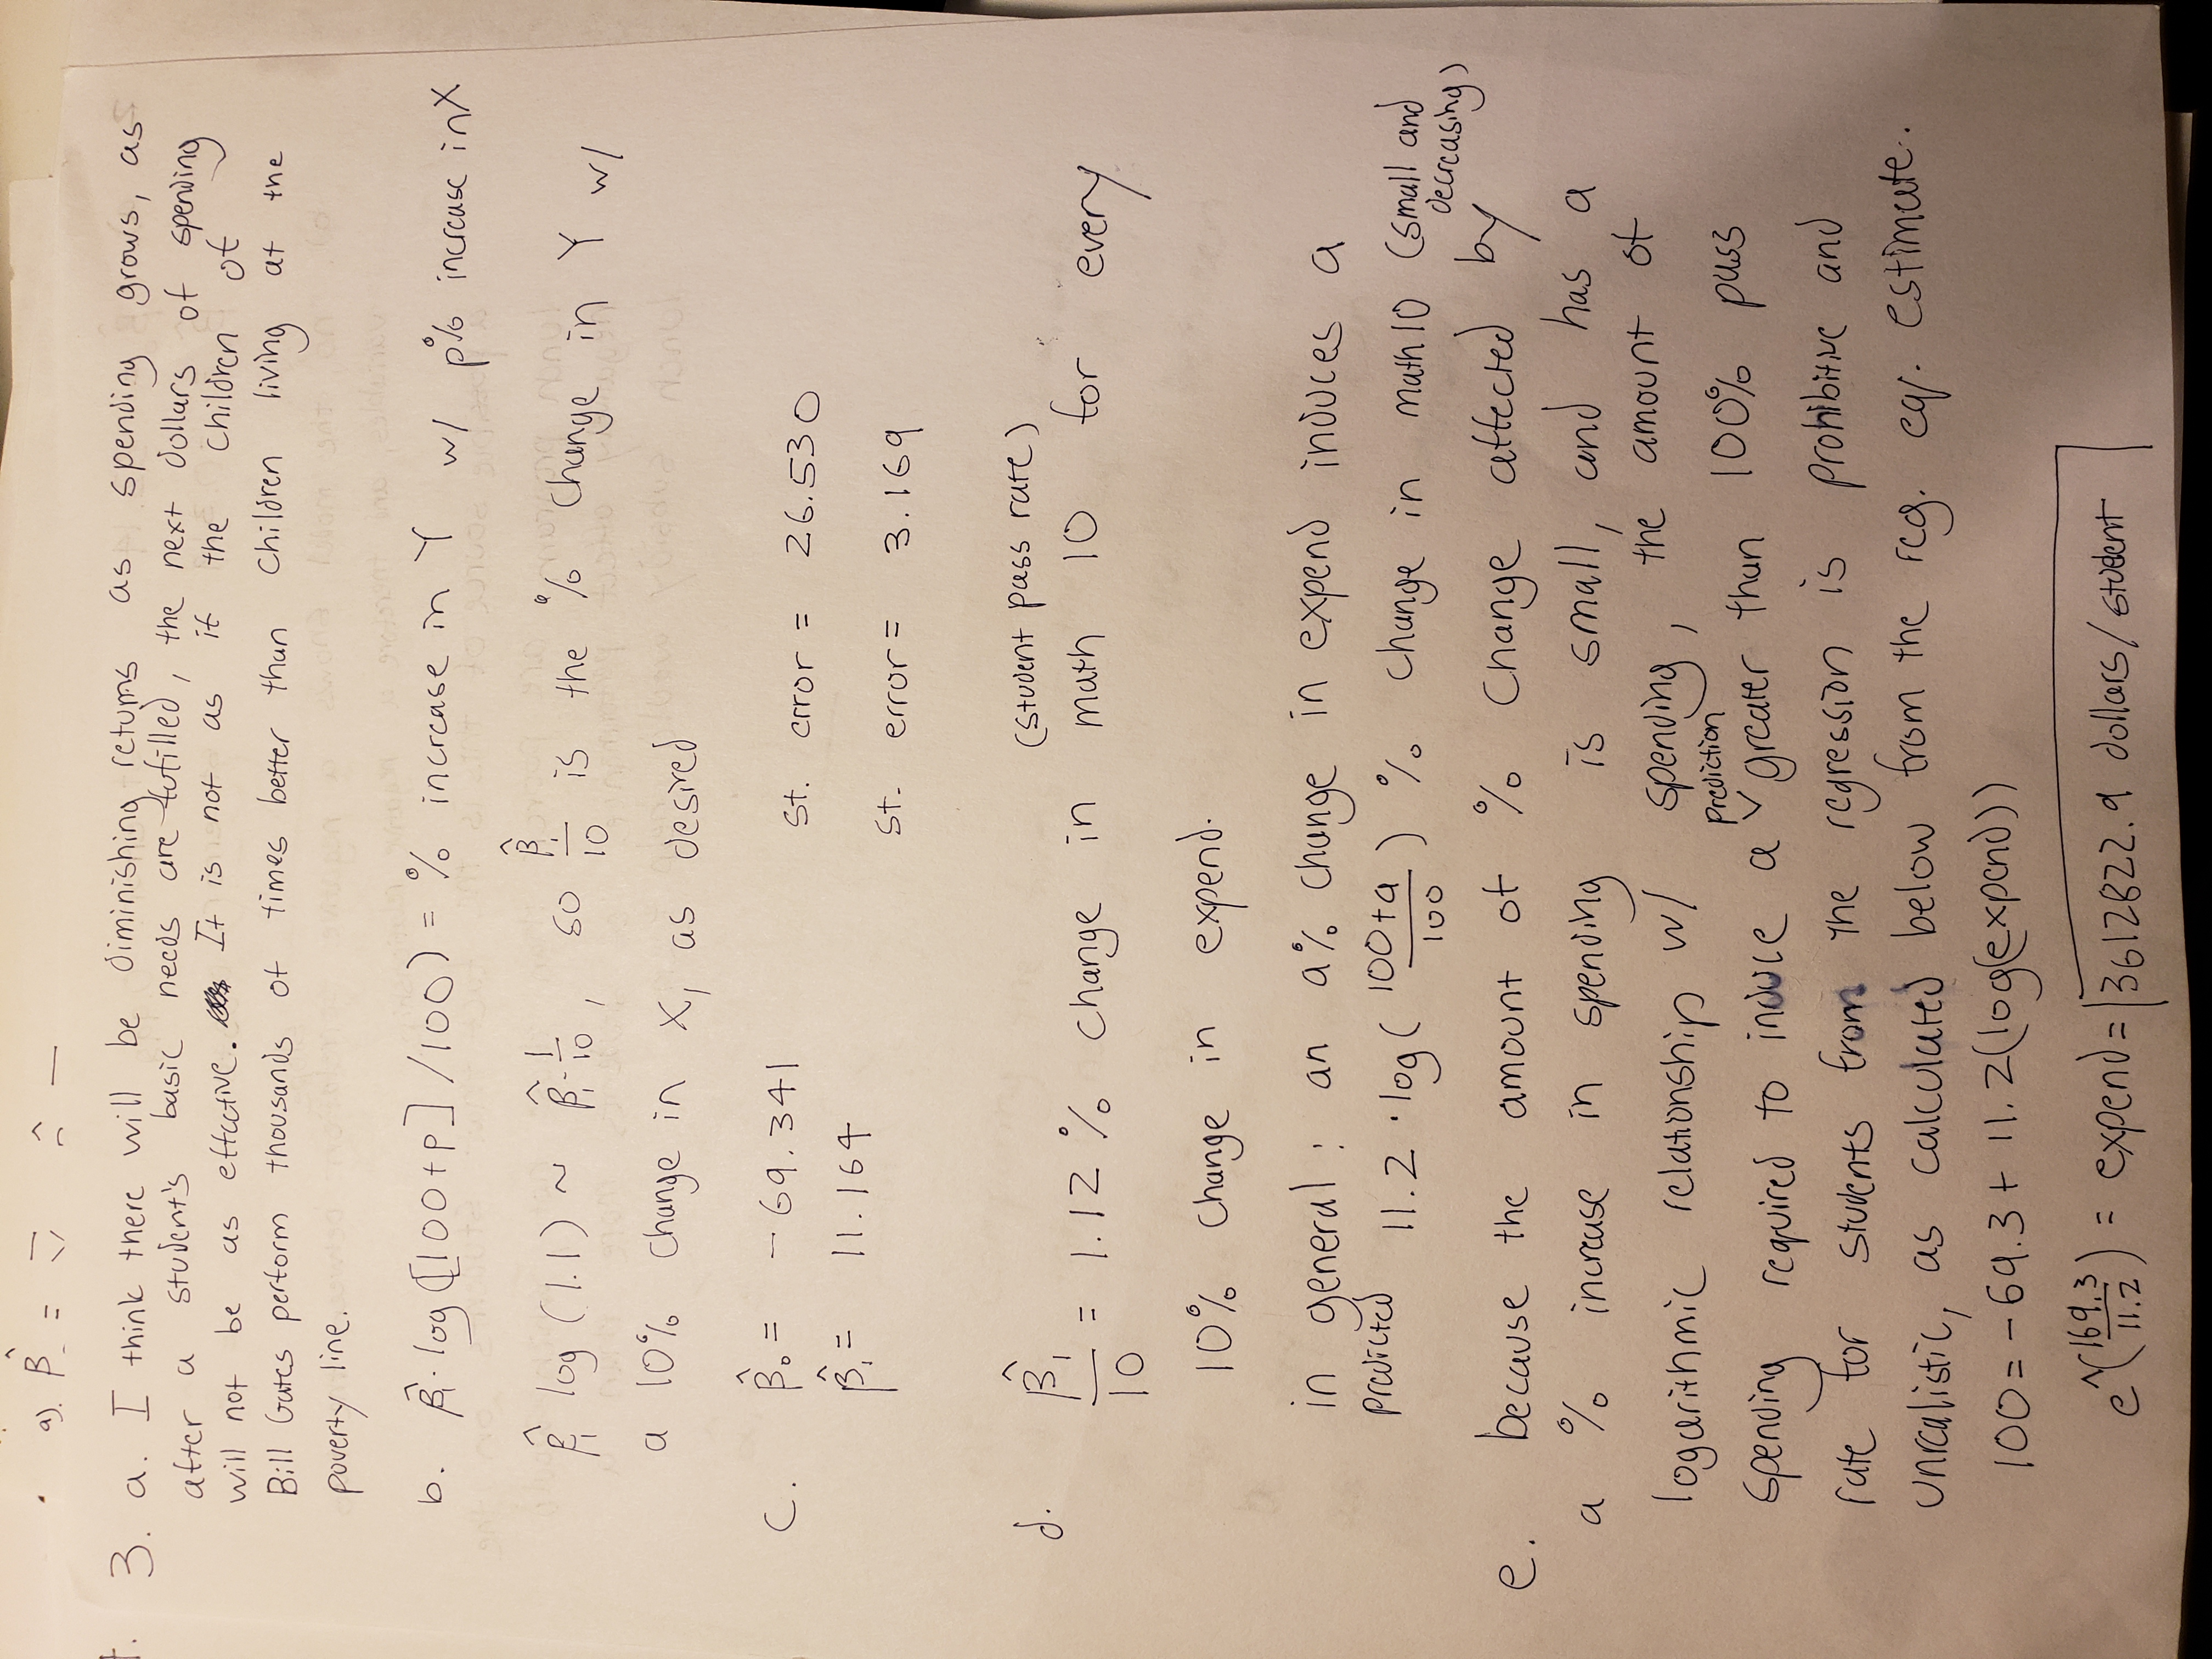 a). β̂ =
3. a. I think there will be diminishing returns as spending grows, as
after a student's basic needs are fufilled, the next dollars of spending
will not be as effective. It is not as if the children of
Bill Gates perform thousands of times better than children living at the
poverty line.
b. β̂₁·log([100+p]/100) = % increase in Y w/ p% increase in X
β̂₁ log(1.1) ~ β̂₁·1/10, so β̂₁/10 is the % change in Y w/
a 10% change in X, as desired
c. β̂₀ = -69.341 st. error = 26.530
β̂₁ = 11.164 st. error = 3.169
d. β̂₁/10 = 1.12% change in math 10 (student pass rate) for every
10% change in expend.
in general: an a% change in expend induces a
predicted 11.2·log((100+a)/100) % change in math10 (small and decreasing)
e. because the amount of % change affected by
a % increase in spending is small, and has a
logarithmic relationship w/ spending, the amount of
spending required to induce a prediction greater than 100% pass
rate for students from the regression is prohibitive and
unrealistic, as calculated below from the reg. eq. estimate.
100 = -69.3 + 11.2(log(expend))
e^(169.3/11.2) = expend = 3612822.9 dollars/student